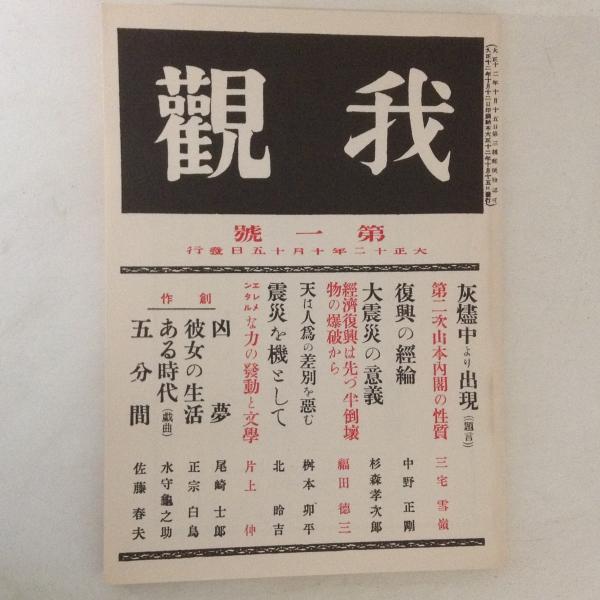 我觀
第一號
大正十二年十月十五日發行
(大正十二年十月十五日第三種郵便物認可
灰燼中より出現(題言)
第二次山本內閣の性質 三宅雪嶺
復興の經綸 中野正剛
大震災の意義 杉森孝次郎
經濟復興は先づ半倒壞
物の爆破から 福田德三
天は人爲の差別を惡む 桝本卯平
震災を機として 北昤吉
エレメンタルな力の發動と文學 片上伸
創作
凶夢 尾崎士郎
彼女の生活 正宗白鳥
ある時代(戲曲) 水守龜之助
五分間 佐藤春夫